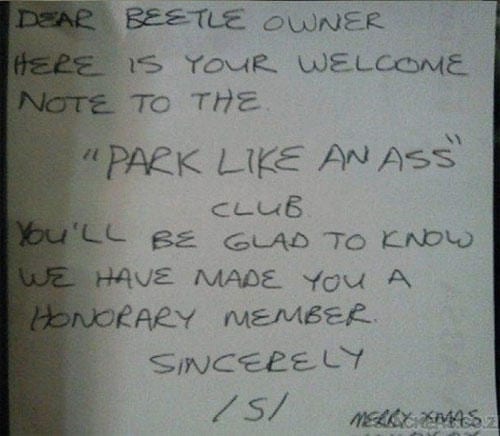 DEAR BEETLE OWNER
HERE IS YOUR WELCOME
NOTE TO THE.
"PARK LIKE AN ASS"
CLUB.
YOU'LL BE GLAD TO KNOW
WE HAVE MADE YOU A
HONORARY MEMBER.
SINCERELY
/S/
MERRY XMAS